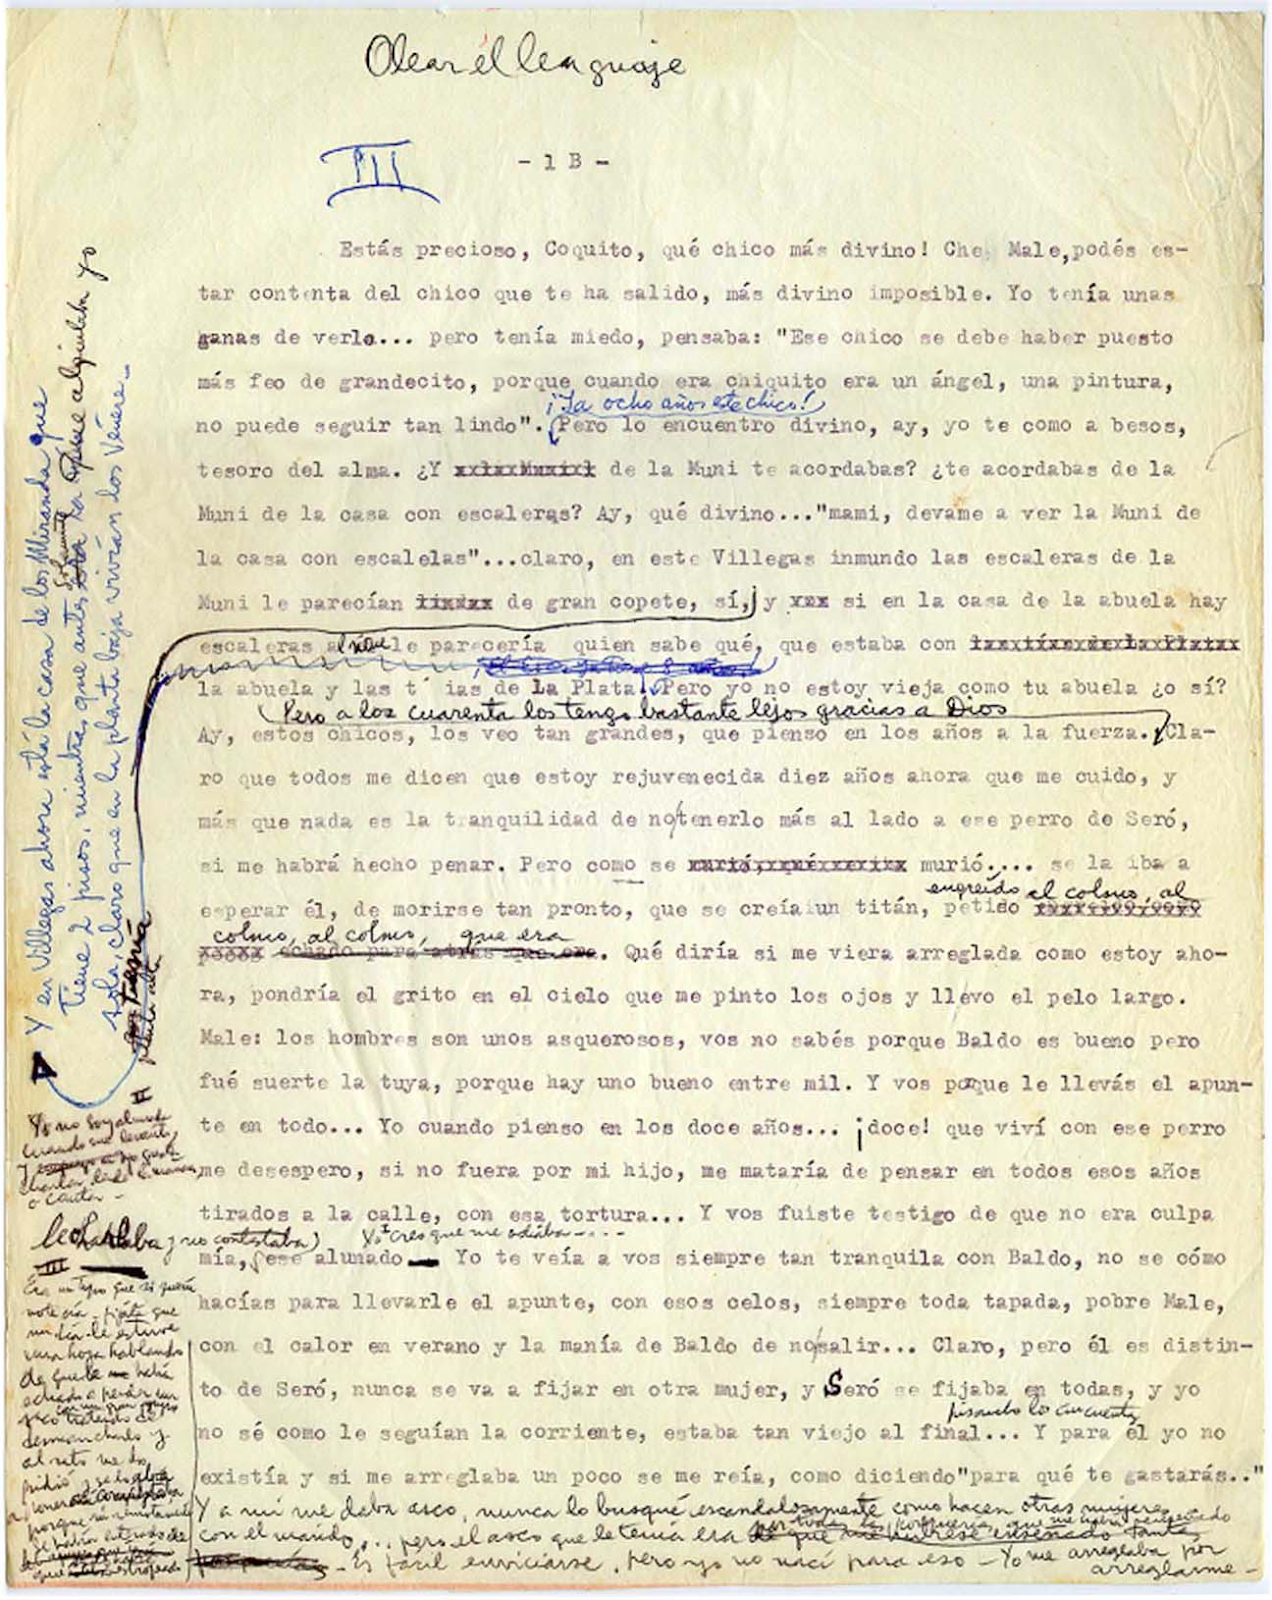 Olear él lenguaje
III
- 1 B -
Estás precioso, Coquito, qué chico más divino! Che, Male, podés es-
tar contenta del chico que te ha salido, más divino imposible. Yo tenía unas
ganas de verlo... pero tenía miedo, pensaba: "Ese chico se debe haber puesto
más feo de grandecito, porque cuando era chiquito era un ángel, una pintura,
¡Ya ocho años este chico!
no puede seguir tan lindo". Pero lo encuentro divino, ay, yo te como a besos,
tesoro del alma. ¿Y de la Muni te acordabas? ¿te acordabas de la
Muni de la casa con escaleras? Ay, qué divino..."mami, devame a ver la Muni de
la casa con escalelas"...claro, en este Villegas inmundo las escaleras de la
Muni le parecían de gran copete, sí, y si en la casa de la abuela hay
escaleras al nene le parecería quien sabe qué, que estaba con
la abuela y las tías de La Plata. Pero yo no estoy vieja como tu abuela ¿o sí?
Pero a los cuarenta los tengo bastante lejos gracias a Dios
Ay, estos chicos, los veo tan grandes, que pienso en los años a la fuerza. Cla-
ro que todos me dicen que estoy rejuvenecida diez años ahora que me cuido, y
más que nada es la tranquilidad de no/tenerlo más al lado a ese perro de Seró,
si me habrá hecho penar. Pero como se murió.... se la iba a
engreído al colmo, al
esperar él, de morirse tan pronto, que se creía un titán, petiso
colmo, al colmo, que era
echado para atrás que era. Qué diría si me viera arreglada como estoy aho-
ra, pondría el grito en el cielo que me pinto los ojos y llevo el pelo largo.
Male: los hombres son unos asquerosos, vos no sabés porque Baldo es bueno pero
fué suerte la tuya, porque hay uno bueno entre mil. Y vos porque le llevás el apun-
te en todo... Yo cuando pienso en los doce años... ¡doce! que viví con ese perro
me desespero, si no fuera por mi hijo, me mataría de pensar en todos esos años
tirados a la calle, con esa tortura... Y vos fuiste testigo de que no era culpa
hablaba y no contestaba) Yo creo que me odiaba
mía, ese alunado Yo te veía a vos siempre tan tranquila con Baldo, no se cómo
hacías para llevarle el apunte, con esos celos, siempre toda tapada, pobre Male,
con el calor en verano y la manía de Baldo de no/salir... Claro, pero él es distin-
to de Seró, nunca se va a fijar en otra mujer, y Seró se fijaba en todas, y yo
pisando los cincuenta
no sé como le seguían la corriente, estaba tan viejo al final... Y para él yo no
existía y si me arreglaba un poco se me reía, como diciendo"para qué te gastarás.."
Y a mí me daba asco, nunca lo busqué escandalosamente como hacen otras mujeres
con el marido... pero el asco que le tenía era
Es fácil enviciarse, pero yo no nací para eso - Yo me arreglaba por
arreglarme -
Y en Villegas ahora está la casa de los Miranda que
tiene 2 pisos, mientras que antes solamente la tenía alquilita yo
sola, claro que en la planta baja vivían los Veñere -
planta alta
II
Yo no soy alunada
cuando me levanto,
III
Era un tipo que si quería
note oía, fijate que
un día le estuve
una hora hablando
de que le había
echado a perder un
saco tratando de
desmancharlo y
al rato me lo
pidió